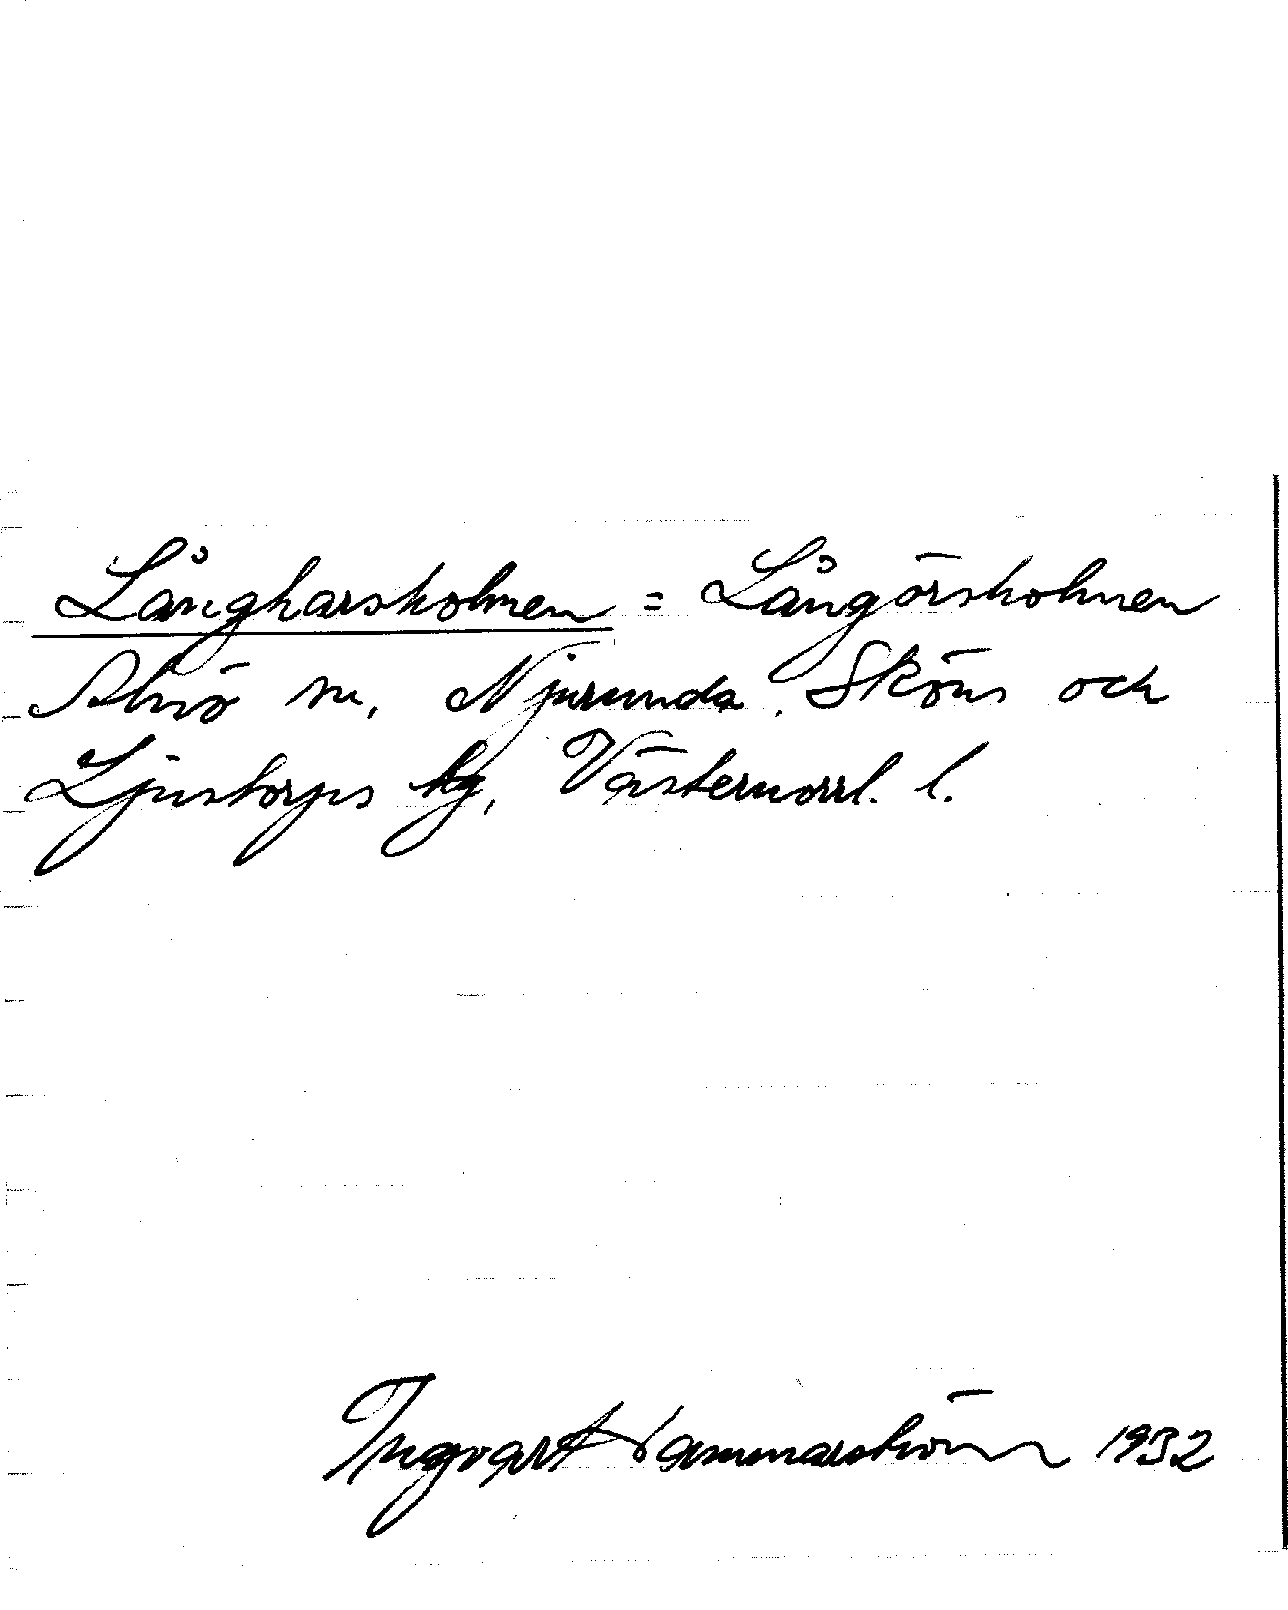 Långharsholmen = Långörsholmen
Alnö sn, Njurunda, Sköns och
Ljustorps tg, Västernorrl. l.
Ingvar Hammarström 1932